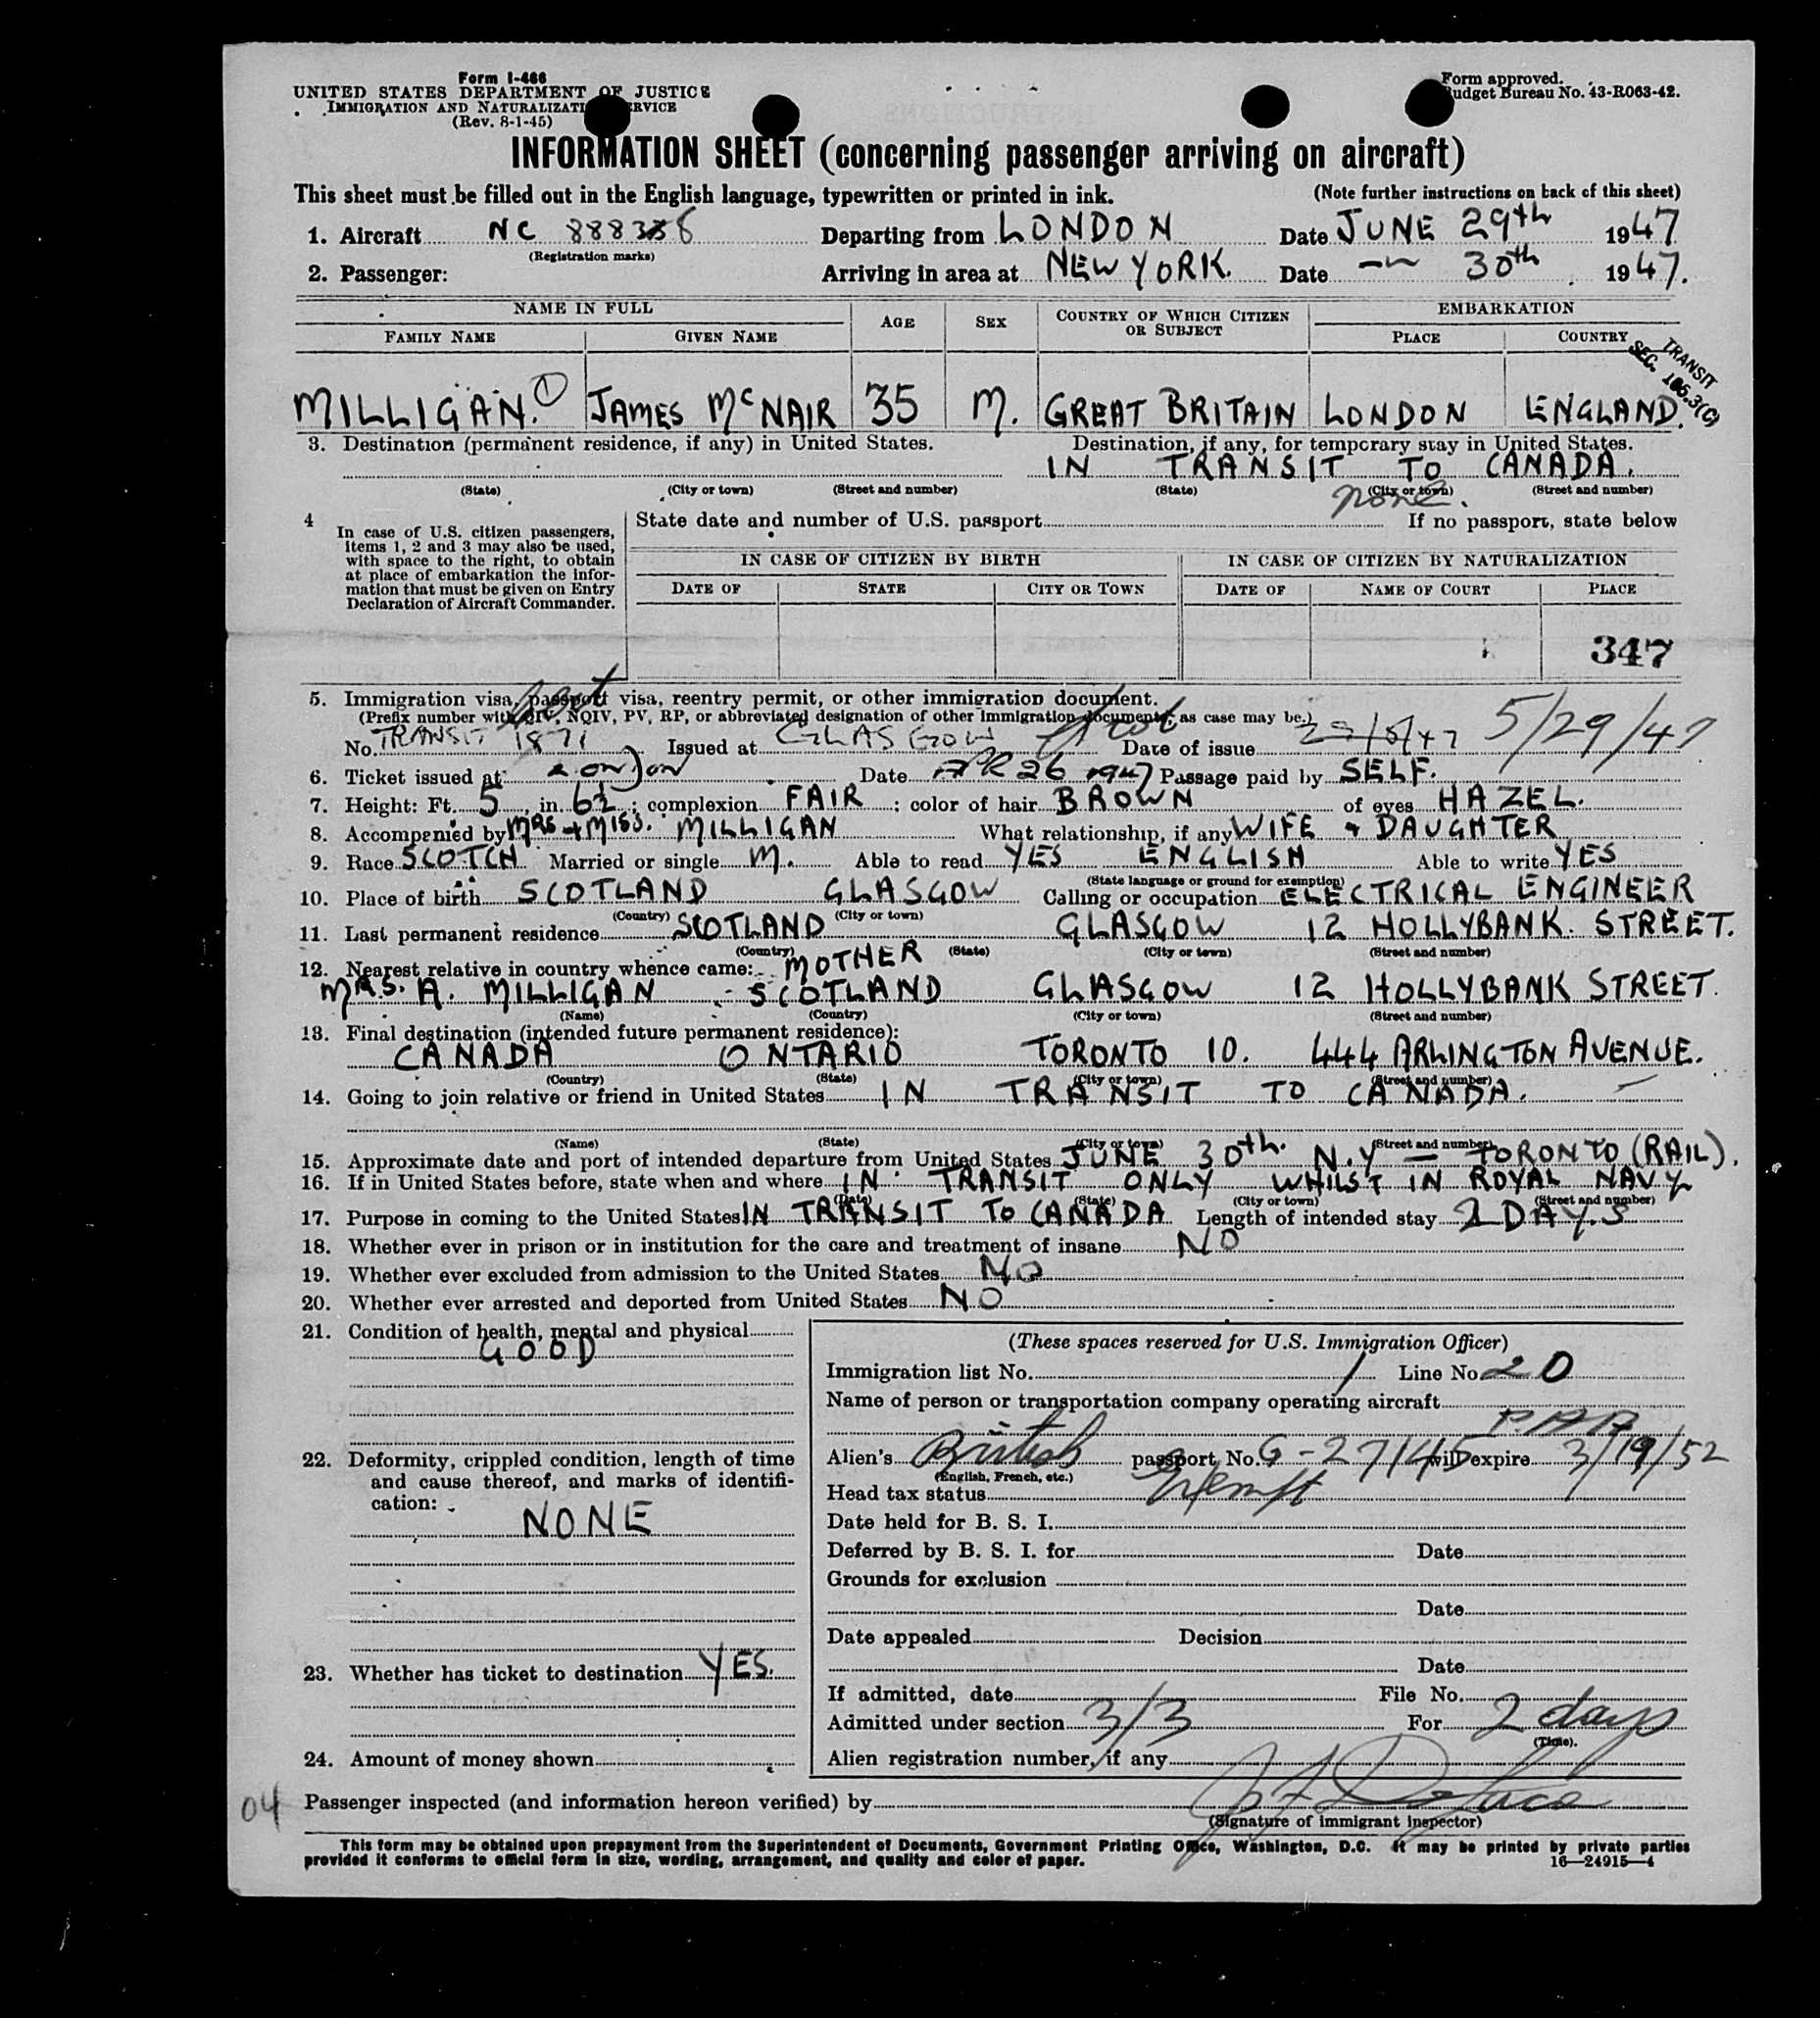 Form I-466
UNITED STATES DEPARTMENT OF JUSTICE
IMMIGRATION AND NATURALIZATION SERVICE
(Rev. 8-1-45)
Form approved.
Budget Bureau No. 43-R063-42.
INFORMATION SHEET (concerning passenger arriving on aircraft)
This sheet must be filled out in the English language, typewritten or printed in ink. (Note further instructions on back of this sheet)
1. Aircraft NC Departing from LONDON Date JUNE 29th 1947
(Registration marks)
2. Passenger: Arriving in area at NEW YORK. Date 30th 1947.
NAME IN FULL AGE SEX COUNTRY OF WHICH CITIZEN OR SUBJECT EMBARKATION
FAMILY NAME GIVEN NAME PLACE COUNTRY
TRANSIT
SEC. 165.3(C)
MILLIGAN. 1 JAMES McNAIR 35 M. GREAT BRITAIN LONDON ENGLAND.
3. Destination (permanent residence, if any) in United States. Destination, if any, for temporary stay in United States.
IN TRANSIT TO CANADA.
(State) (City or town) (Street and number) (State) (City or town) (Street and number)
none.
4 In case of U.S. citizen passengers, items 1, 2 and 3 may also be used, with space to the right, to obtain at place of embarkation the information that must be given on Entry Declaration of Aircraft Commander.
State date and number of U.S. passport If no passport, state below
IN CASE OF CITIZEN BY BIRTH IN CASE OF CITIZEN BY NATURALIZATION
DATE OF STATE CITY OR TOWN DATE OF NAME OF COURT PLACE
347
5. Immigration visa, passport visa, reentry permit, or other immigration document.
(Prefix number with QIV, NQIV, PV, RP, or abbreviated designation of other immigration documents, as case may be.)
No. TRANSIT 1871 Issued at GLASGOW Scot Date of issue 29/5/47 5/29/47
6. Ticket issued at London Date APR 26 1947 Passage paid by SELF.
7. Height: Ft. 5, in. 6½; complexion FAIR; color of hair BROWN of eyes HAZEL.
8. Accompanied by MRS + MISS. MILLIGAN What relationship, if any WIFE & DAUGHTER
9. Race SCOTCH Married or single M. Able to read YES ENGLISH Able to write YES
(State language or ground for exemption)
10. Place of birth SCOTLAND GLASGOW Calling or occupation ELECTRICAL ENGINEER
(Country) (City or town)
11. Last permanent residence SCOTLAND GLASGOW 12 HOLLYBANK. STREET.
(Country) (State) (City or town) (Street and number)
12. Nearest relative in country whence came: MOTHER
MRS. A. MILLIGAN - SCOTLAND GLASGOW 12 HOLLYBANK STREET.
(Name) (Country) (City or town) (Street and number)
13. Final destination (intended future permanent residence):
CANADA ONTARIO TORONTO 10. 444 ARLINGTON AVENUE.
(Country) (State) (City or town) (Street and number)
14. Going to join relative or friend in United States IN TRANSIT TO CANADA.
(Name) (State) (City or town) (Street and number)
15. Approximate date and port of intended departure from United States JUNE 30th. N.Y — TORONTO (RAIL).
16. If in United States before, state when and where IN TRANSIT ONLY WHILST IN ROYAL NAVY
(Date) (State) (City or town) (Street and number)
17. Purpose in coming to the United States IN TRANSIT TO CANADA Length of intended stay 2 DAYS
18. Whether ever in prison or in institution for the care and treatment of insane NO
19. Whether ever excluded from admission to the United States NO
20. Whether ever arrested and deported from United States NO
21. Condition of health, mental and physical
GOOD
22. Deformity, crippled condition, length of time and cause thereof, and marks of identification:
NONE
23. Whether has ticket to destination YES.
24. Amount of money shown
(These spaces reserved for U.S. Immigration Officer)
Immigration list No. 1 Line No. 20
Name of person or transportation company operating aircraft
P.A.A.
Alien's British passport No. G-27145 will expire 3/19/52
(English, French, etc.)
Head tax status Exempt
Date held for B. S. I.
Deferred by B. S. I. for Date
Grounds for exclusion
Date
Date appealed Decision
Date
If admitted, date File No.
Admitted under section 3/3 For 2 days
(Time).
Alien registration number, if any
04
Passenger inspected (and information hereon verified) by
(Signature of immigrant inspector)
This form may be obtained upon prepayment from the Superintendent of Documents, Government Printing Office, Washington, D.C. It may be printed by private parties
provided it conforms to official form in size, wording, arrangement, and quality and color of paper. 16—24915-4